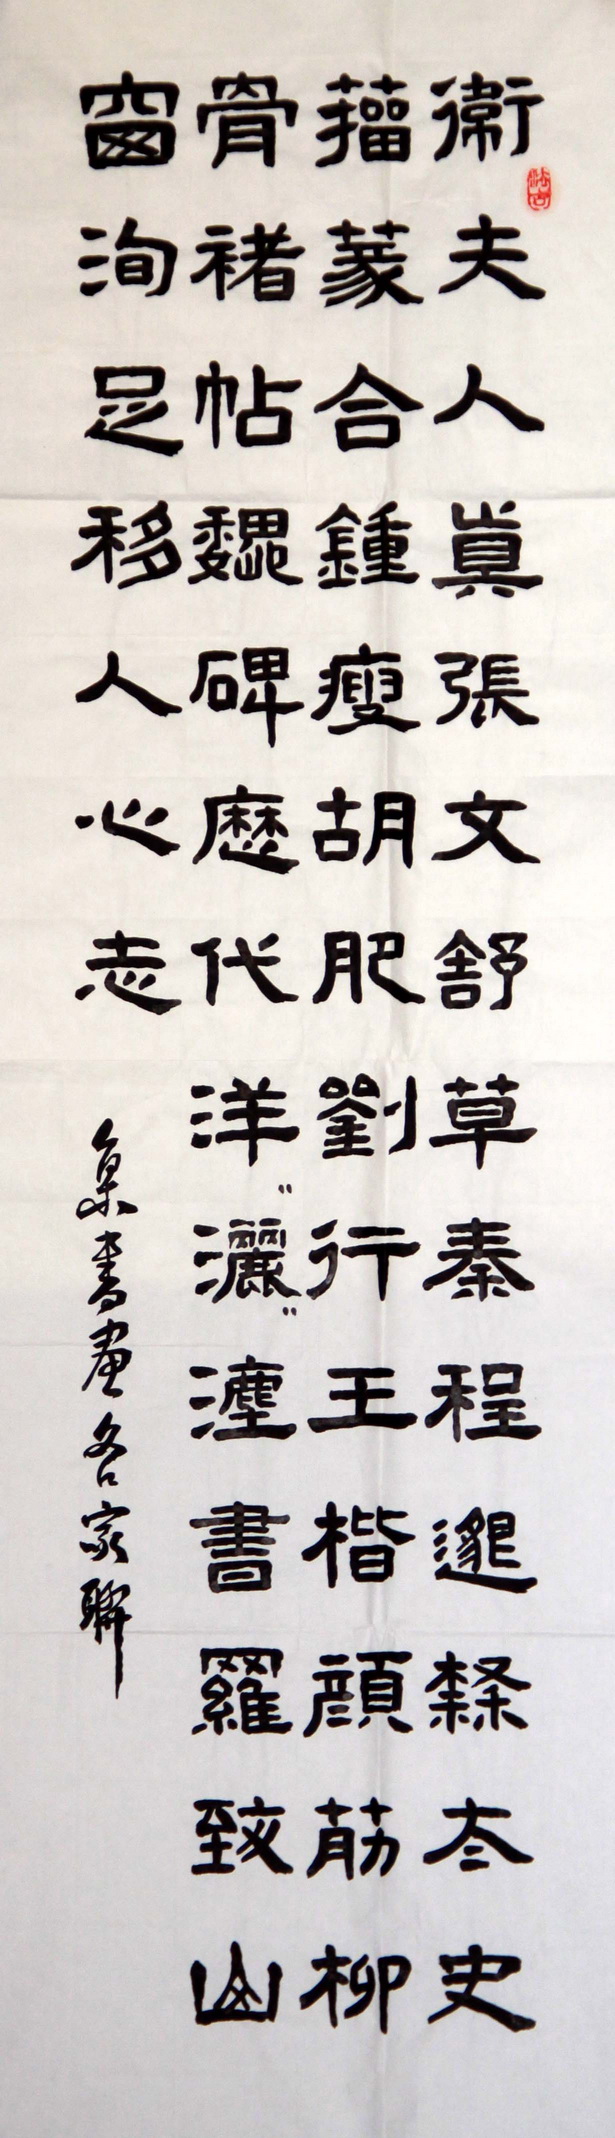 衛夫人眞張文舒草秦程邈隸夳史
籀篆合鍾瘦胡肥劉行王楷顏筋柳
骨褚帖魏碑歷代洋"灑"灋書羅致山
窗洵足移人心志
集書畫名家聯